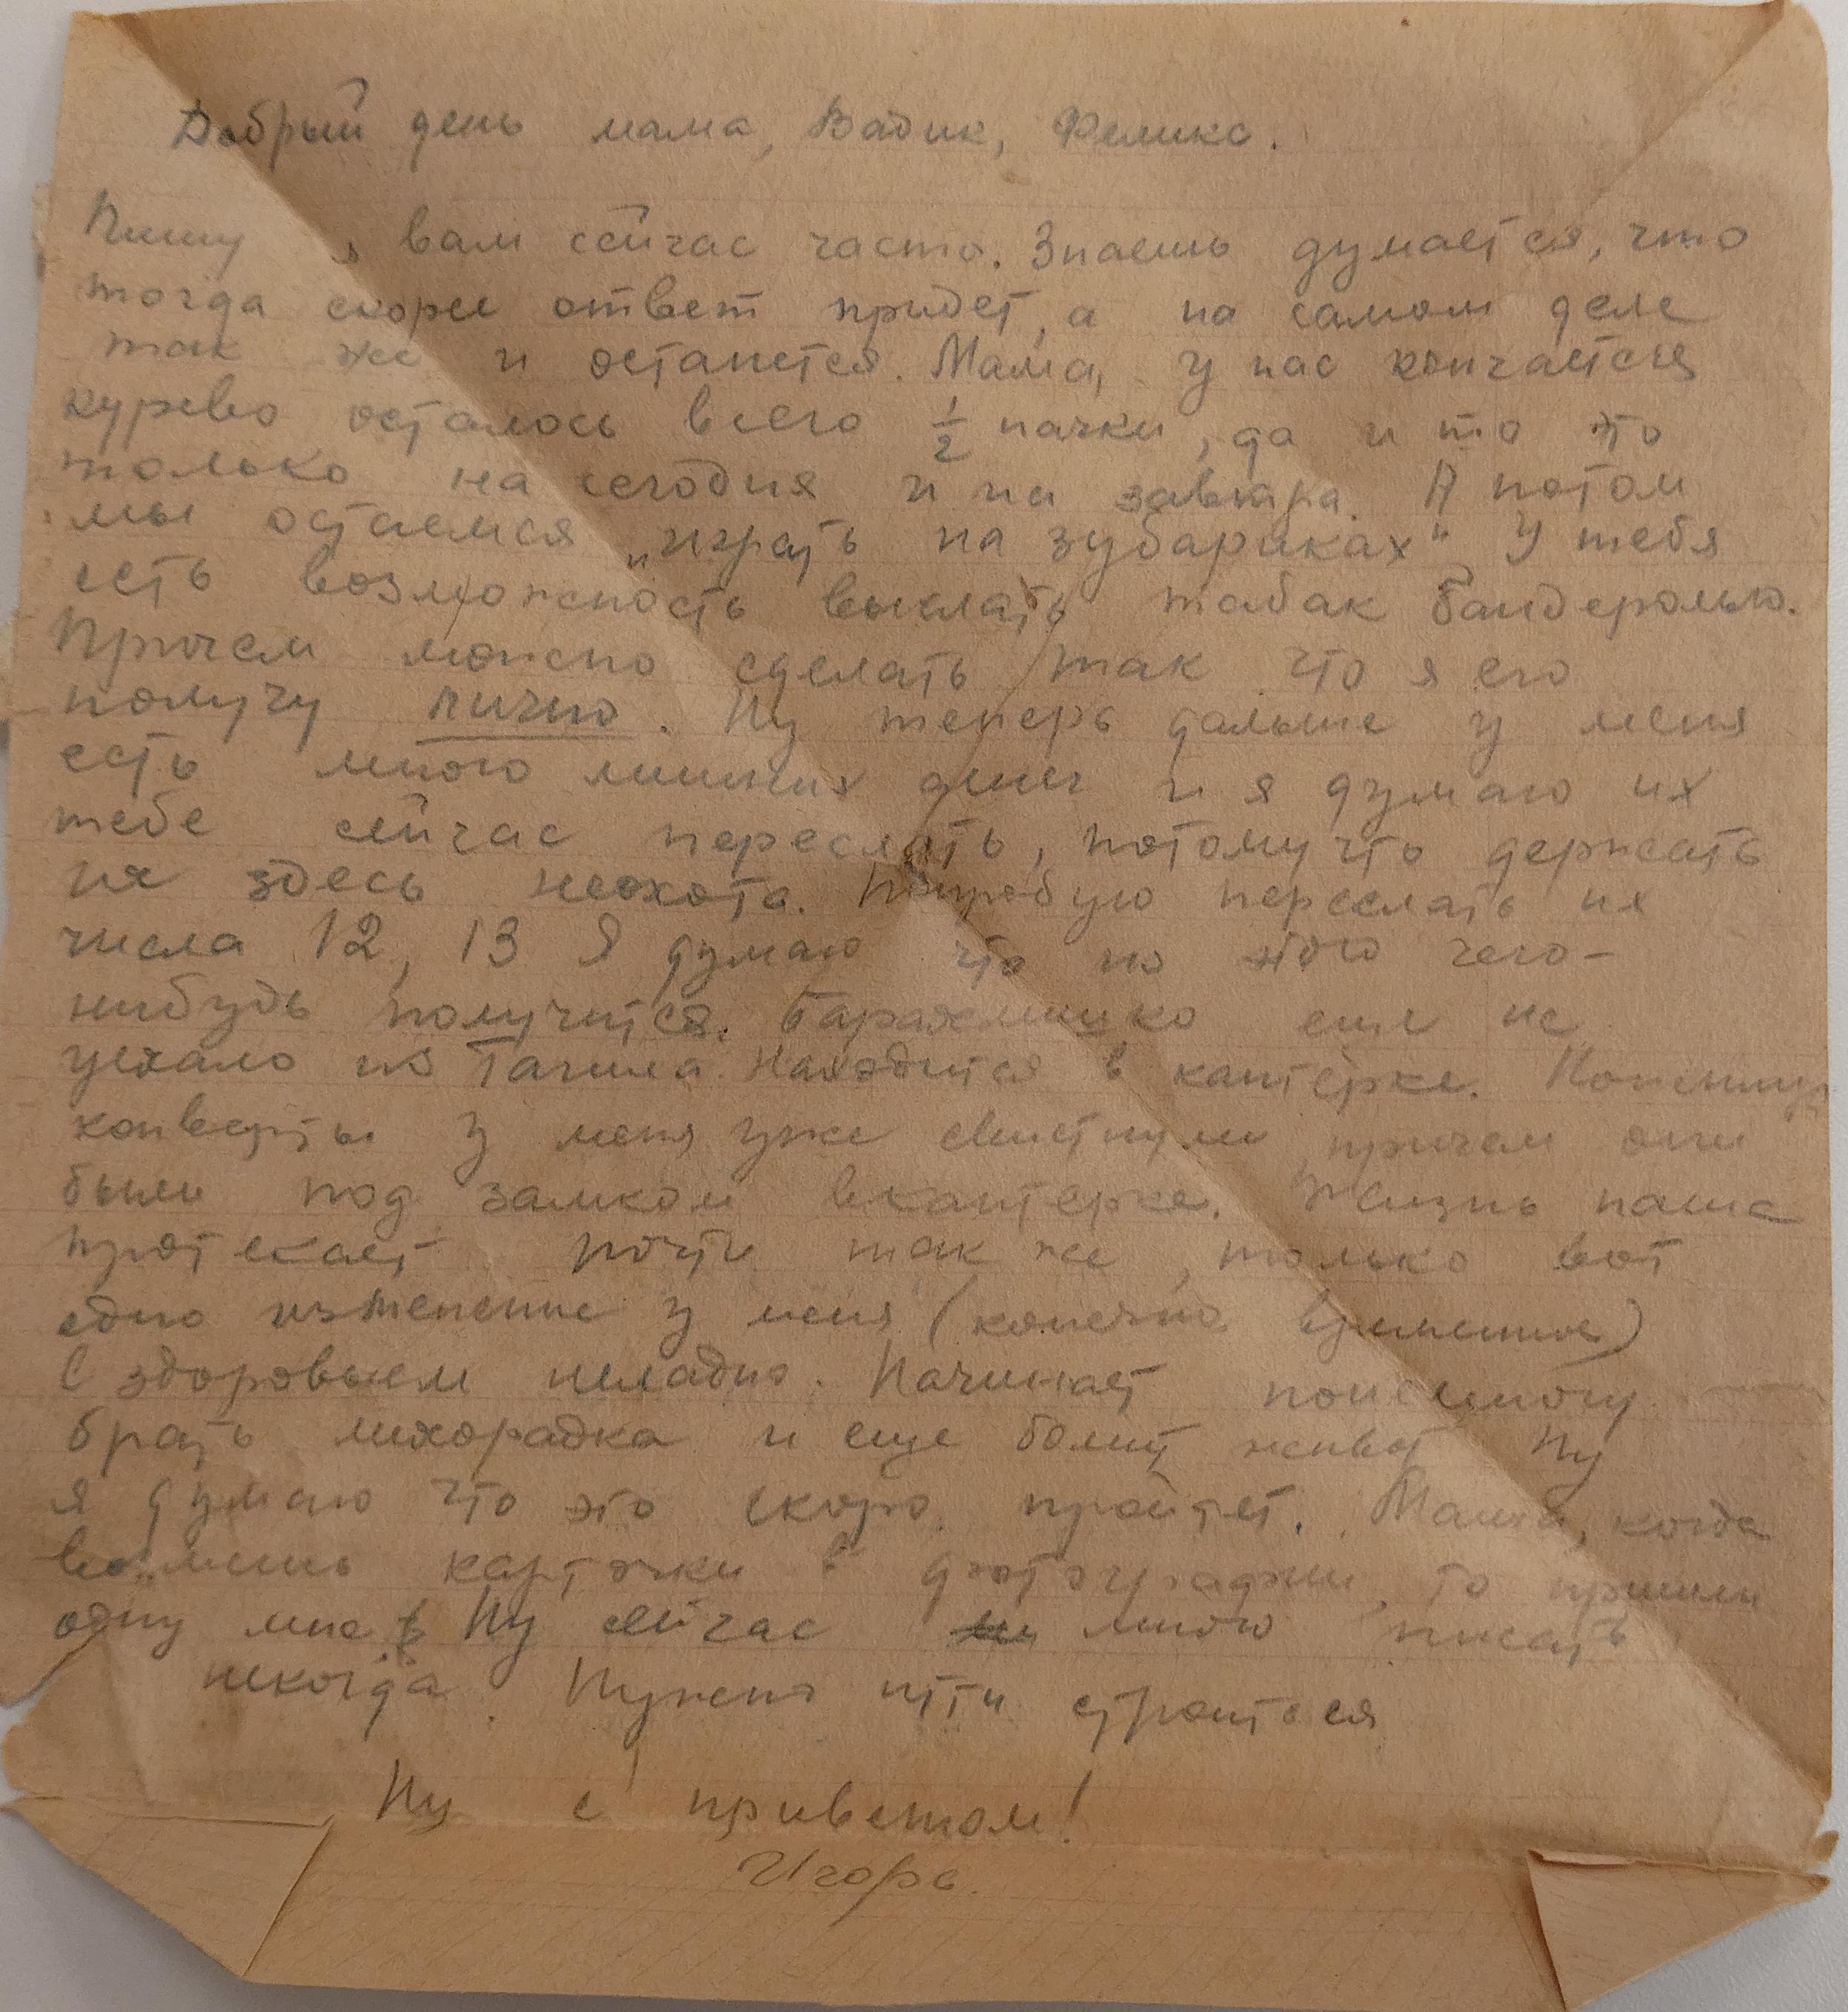 Добрый день мама, Вадик, Феликс.
Пишу я вам сейчас часто. Знаешь думается, что
тогда скорее ответ придет, а на самом деле
так же и останется. Мама, у нас кончается
курево осталось всего 1/2 пачки, да и то это
только на сегодня и на завтра. А потом
мы остаемся „играть на зубариках" У тебя
есть возможность выслать табак бандеролью.
Причем можно сделать так что я его
получу лично. Ну теперь дальше у меня
есть много лишних денег и я думаю их
тебе сейчас переслать, потому что держать
их здесь неохота. Попробую переслать их
числа 12, 13 Я думаю что из этого чего-
нибудь получится. Барахлишко еще не
уехало из Тагила. Находится в каптерке.
конверты у меня уже свистнули причем они
были под замком в каптерке. Жизнь наша
протекает почти так же, только вот
одно изменение у меня (конечно временное)
С здоровьем неладно. Начинает понемногу
брать лихорадка и еще болит живот Ну
я думаю что это скоро пройдет. Мама, когда
возьмешь карточки в фотографии, то пришли
одну мне Ну сейчас много писать
некогда. Нужно итти строится
Ну с приветом!
Игорь.